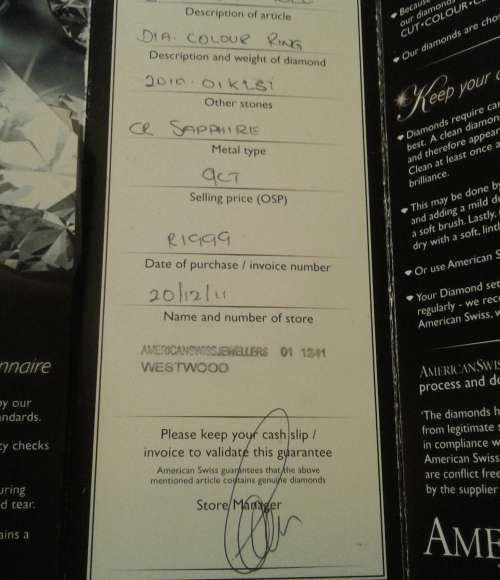 Description of article
DIA. COLOUR RING
Description and weight of diamond
Other stones
CR SAPPHIRE
Metal type
9CT
Selling price (OSP)
R1999
Date of purchase / invoice number
20/12/11
Name and number of store
AMERICANSWISSJEWELLERS 01 1241
WESTWOOD
Please keep your cash slip /
invoice to validate this guarantee
American Swiss guarantees that the above
mentioned article contains genuine diamonds
Store Manager
nnaire
by our
andards.
ty checks
uring
d tear.
ains a
Because
our diamonds
CUT•COLOUR•C
Our diamonds are cho
Keep your
Diamonds require car
best. A clean diamon
and therefore appea
Clean at least once a
brilliance.
This may be done by
and adding a mild de
a soft brush. Lastly,
dry with a soft, lint
Or use American S
Your Diamond set
regularly - we rec
American Swiss, w
AMERICANSWIS
process and do
'The diamonds h
from legitimate s
in compliance w
American Swiss
are conflict free
by the supplier
AMER